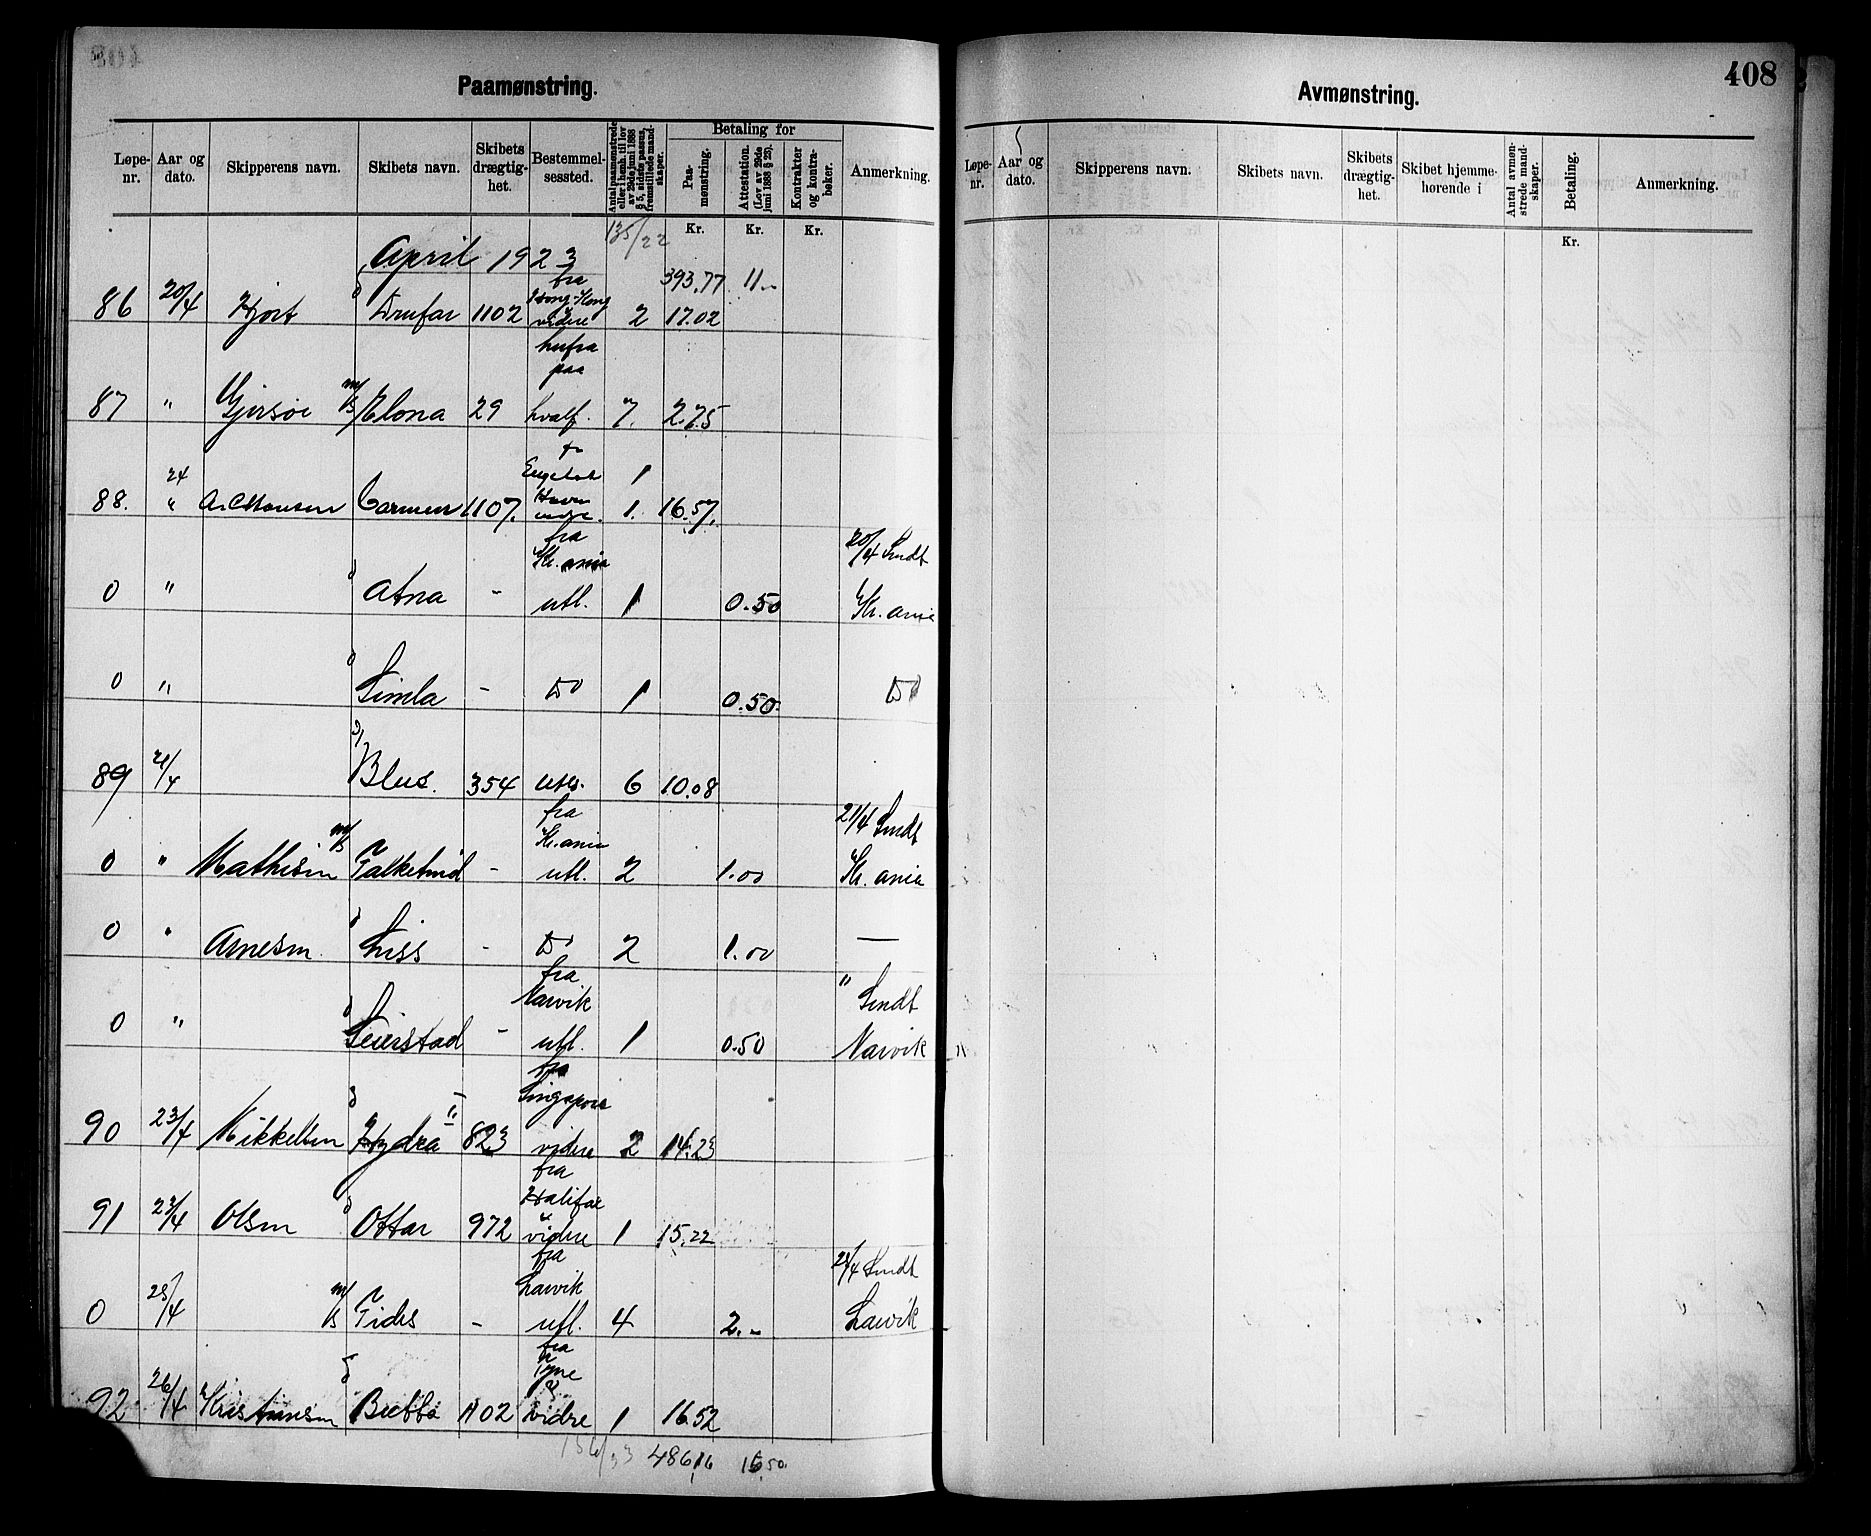 Paamønstring.
Løpe-nr. Aar og dato. Skipperens navn. Skibets navn. Skibets drægtig-het. Bestemmel-sessted. Antal paamønstrede eller i henh. til lov av 29de juni 1888 § 5, sidste passus, fremstillede mand-skaper. Betaling for Paa-mønstring. Attestation. (Lov av 29de juni 1888 § 23). Kontrakter og kontra-bøker. Anmerkning.
Kr. Kr. Kr.
135/22
April 1923 393,77 11.-
fra
Hong-Kong
86 20/4 Hjort Drufar 1102 videre 2 17.02
herfra
paa
87 " Gjersøe m/s Elona 29 hvalf. 7. 2.75
1
88. 24 " A. C. Hansen Carmen 1107. 1. 16.57.
fra
Kr.ania 20/4 Sendt
0 " Atna - utl. 1 0.50 Kr. ania
0 " Simla - Do 1 0.50. Do
89 21/4 Blus. 354 6 10.08
fra
Kr.ania 21/4 Sendt
0 " Mathisen m/s Falketind - utl. 2 1.00 Kr. ania
0 " Arnesen. Liss - Do 2 1.00 —
fra
Narvik " Sendt
0 " Seierstad - utl. 1 0.50 Narvik
fra
Singapore
90 23/4 Mikkelsen Hydra II 823 videre 2 14.23
fra
Halifax
91 23/4 Olsen Ottar 972 videre 1 15.22
fra
Larvik 24/4 Sendt
0 25/4 m/s Tides - utl. 4 2.- Larvik
fra
Tyne
&
92 26/4 Kristiansen 1102 vidre 1 16.52
156/33 486,16 16.50.
Avmønstring.
408
Løpe-nr. Aar og dato. Skipperens navn. Skibets navn. Skibets drægtig-het. Skibet hjemme-hørende i Antal avmøn-strede mand-skaper. Betaling. Anmerkning.
Kr.